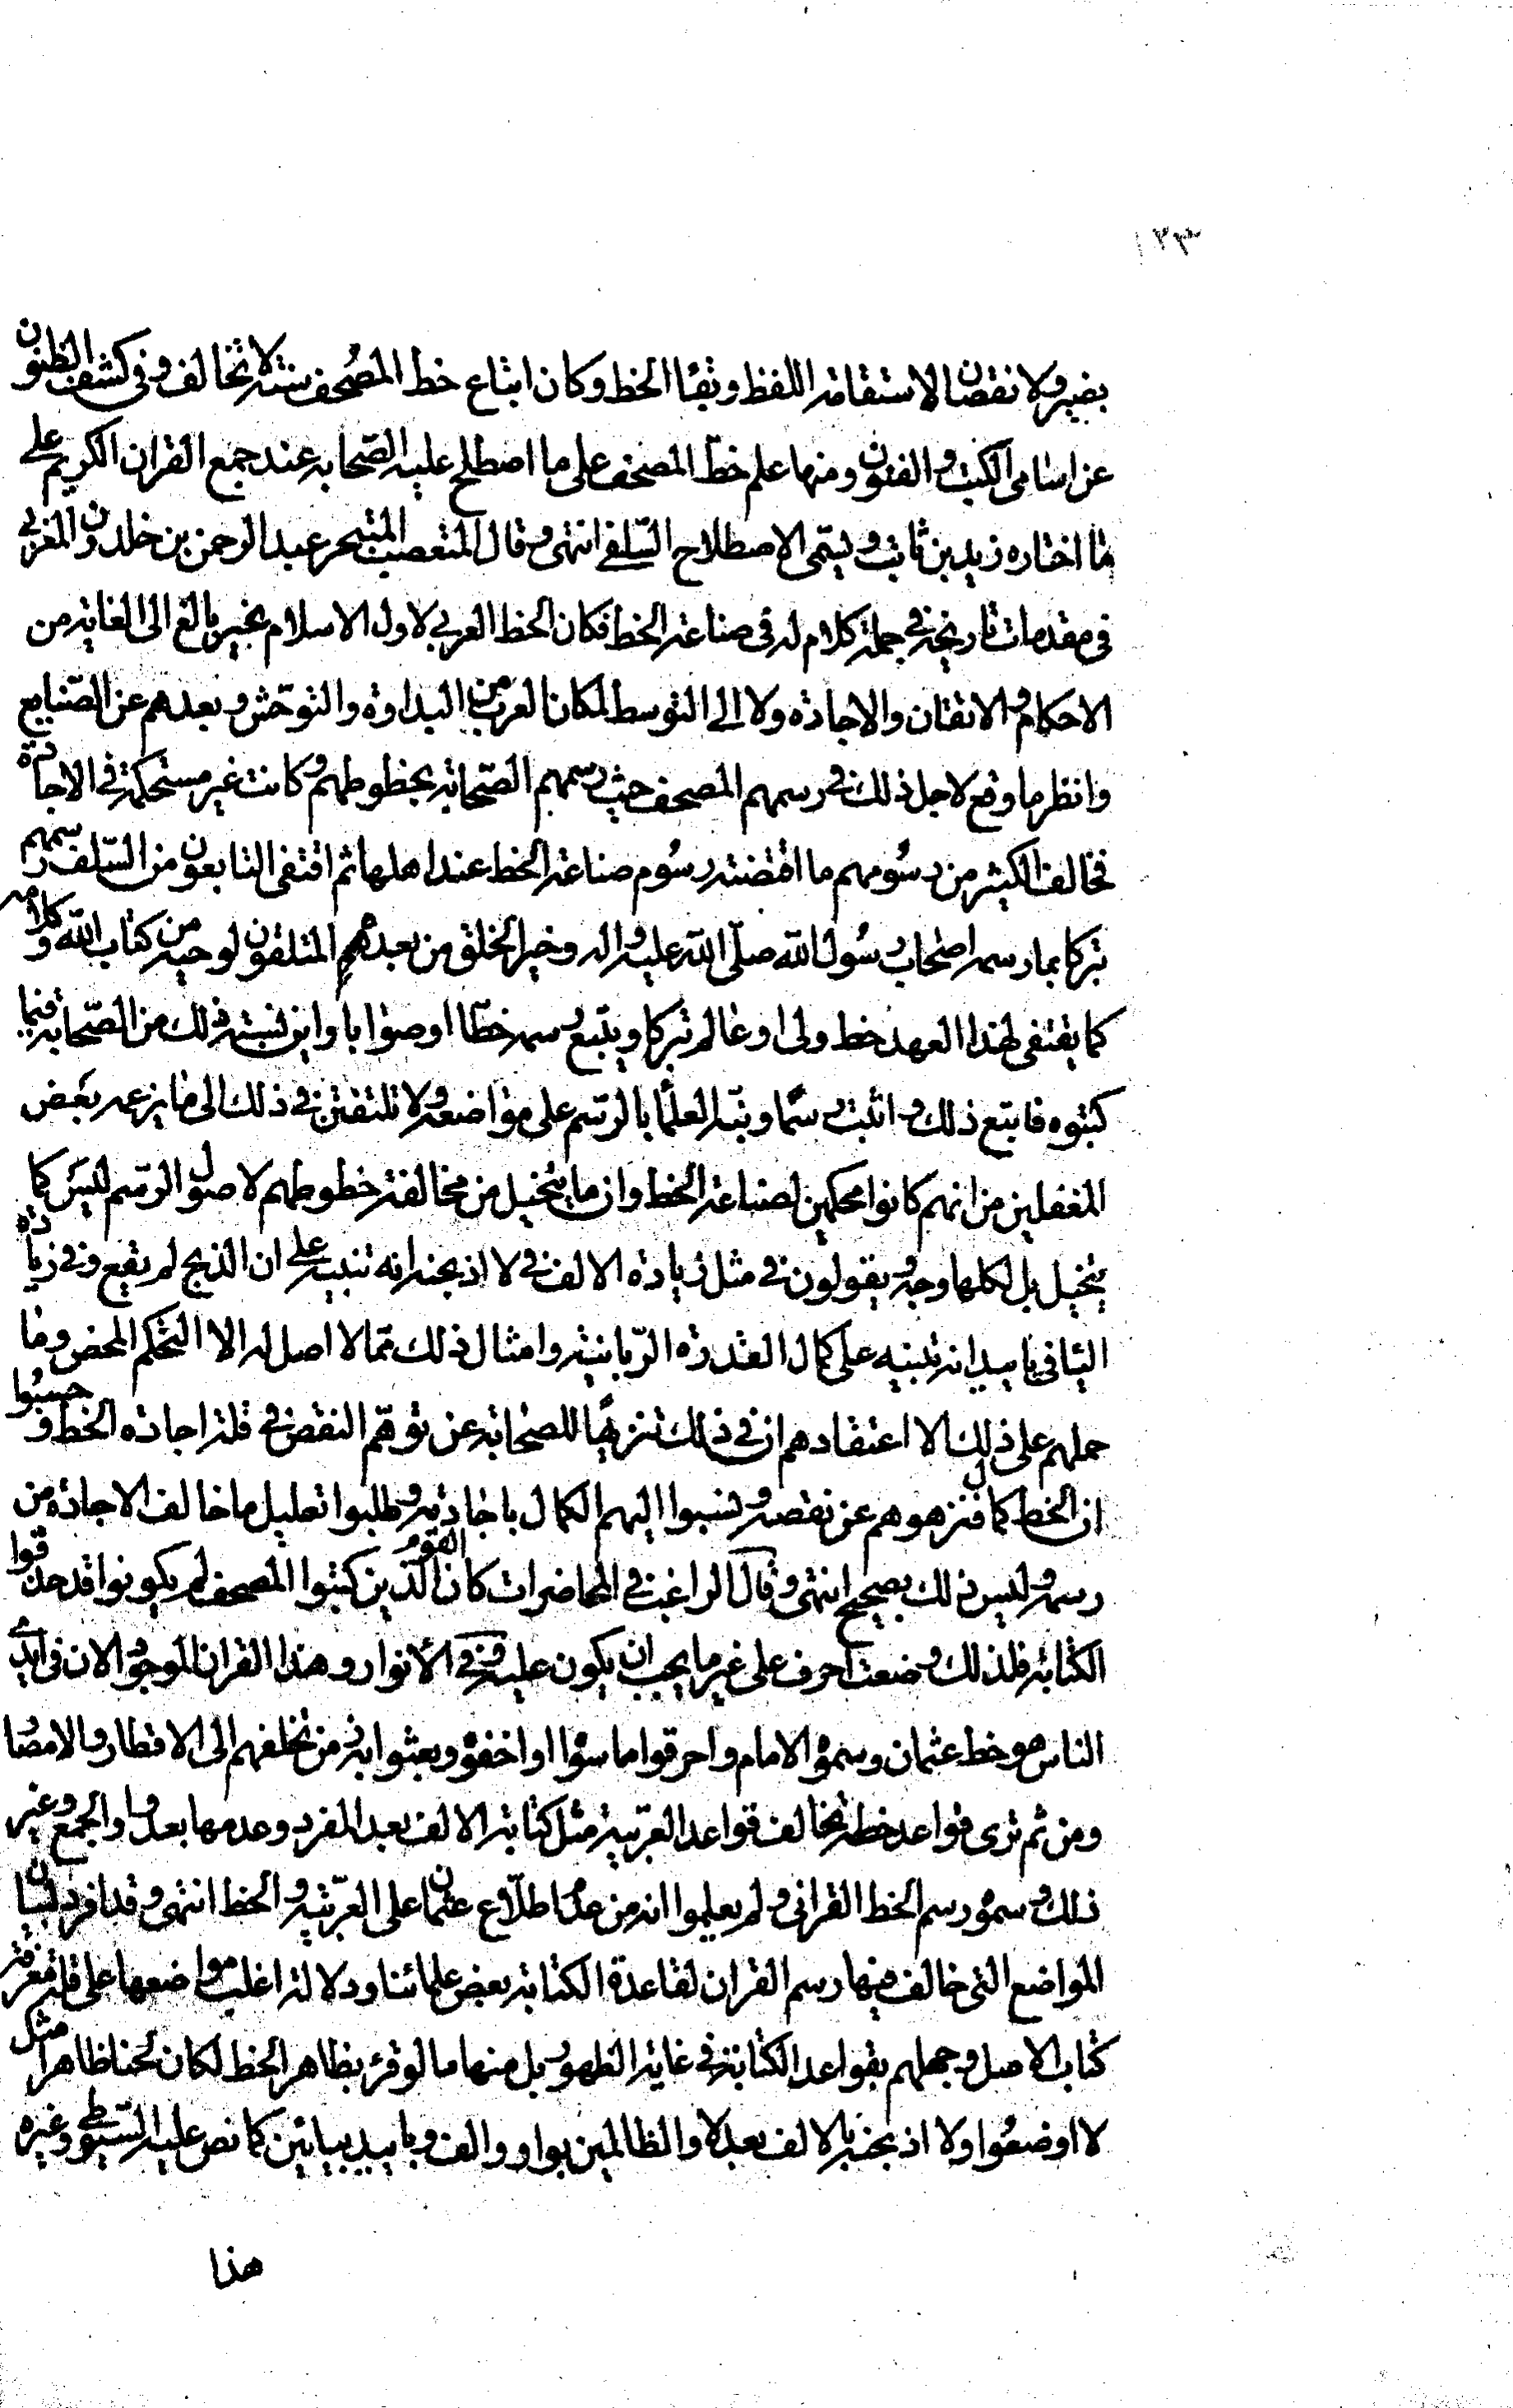 ١٣٣
بضير ولا نقصان لاستقامة اللفظ وبقاء الخط وكان اتباع خط المصحف سنة لا تخالف وفى كشف الظنون
عن اسامى الكتب والفنون ومنها علم خط المصحف على ما اصطلح عليه الصحابه عند جمع القران الكريم على
ما اختاره زيد بن ثابت ويسمى الاصطلاح السلفى انتهى وقال المتعصب المتبحر عبد الرحمن بن خلدون المغربى
فى مقدمات تاريخه فى جملة كلام له فى صناعة الخط فكان الخط العربى لاول الاسلام بخير بالغ الى الغاية من
الاحكام والاتقان والاجادة ولا الى التوسط لمكان العرب من البداوة والتوحش وبعدهم عن الصنايع
وانظر ما وقع لاجل ذلك فى رسمهم المصحف حيث رسمهم الصحابة بخطوطهم وكانت غير مستحكمة فى الاجادة
فخالف الكثير من رسومهم ما اقتضته رسوم صناعة الخط عند اهلها ثم اقتفى التابعون من السلف رسمهم
تبركا بما رسمه اصحاب رسول الله صلى الله عليه واله وخير الخلق من بعدهم المتلقون لوحيه من كتاب الله وكلامه
كما يقتفى لهذا العهد خط ولى او عالم تبركا ويتبع رسمه خطا او صوابا واين نسبة ذلك من الصحابة فيما
كتبوه فاتبع ذلك واثبت رسما ونبه العلما بالرسم على مواضعه ولا تلتفتن فى ذلك الى ما يزعمه بعض
المغفلين من انهم كانوا محكمين لصناعة الخط وان ما يتخيل من مخالفة خطوطهم لاصول الرسم ليس كما
يتخيل بل لكلها وجه ويقولون فى مثل زيادة الالف فى لا اذبحنه انه تنبيه على ان الذبح لم يقع وفى زيادة
اليا فى باييد انه تنبيه على كمال القدرة الربانية وامثال ذلك مما لا اصل له الا التحكم المحض وما
حملهم على ذلك الا اعتقادهم ان فى ذلك تنزيها للصحابة عن توهم النقص فى قلة اجادة الخط وحسبوا
ان الخط كمال فنزهوهم عن نقصه ونسبوا اليهم الكمال باجادته وطلبوا تعليل ما خالف الاجادة من
رسمه وليس ذلك بصحيح انتهى وقال الراغب فى المحاضرات كان القوم الذين كتبوا المصحف لم يكونوا قد حذقوا
الكتابة فلذلك وضعت احرف على غير ما يجب ان يكون عليه وفى الأنوار وهذا القران الموجود الان فى ايدى
الناس هو خط عثمان وسموه الامام واحرقوا ما سواه او اخفوه وبعثوا به زمن تخلفهم الى الاقطار والامصار
ومن ثم ترى قواعد خطه تخالف قواعد العربية مثل كتابة الالف بعد المفرد وعدمها بعد واو الجمع وغير
ذلك وسموه رسم الخط القرانى ولم يعلموا انه من عدم اطلاع عثمان على العربية والخط انتهى وقد افرد لبيان
المواضع التى خالف فيها رسم القران لقاعدة الكتابة بعض علمائنا ودلالة اغلب مواضعها على قلة معرفة
كتاب الاصل وجهلهم بقواعد الكتابة فى غاية الظهور بل منها ما لو قرئ بظاهر الخط لكان لحنا ظاهرا مثل
لا اوضعوا ولا اذبحنه بالالف بعد لا والظالمين بواو والف وباييد بيائين كما نص عليه السيوطى وغيره
هذا